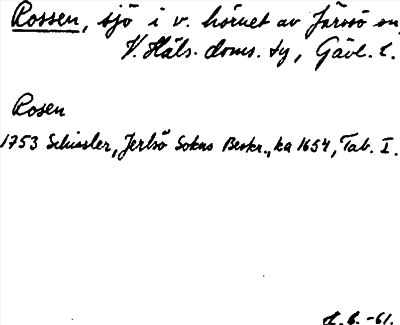 Rossen, sjö i v. hörnet av Järvsö sn,
V. Häls. doms. dy, Gävl. l.
Rosen
1753 Schissler, Jerlsö Sokns Beskr., ka 1654, Tab. I.
H. G. -61.